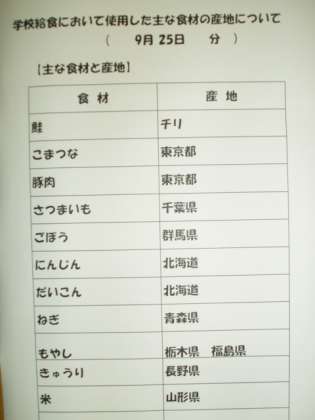 学校給食において使用した主な食材の産地について
(　9月 25日　分　)
【主な食材と産地】
食 材　産 地
鮭　チリ
こまつな　東京都
豚肉　東京都
さつまいも　千葉県
ごぼう　群馬県
にんじん　北海道
だいこん　北海道
ねぎ　青森県
もやし　栃木県　福島県
きゅうり　長野県
米　山形県